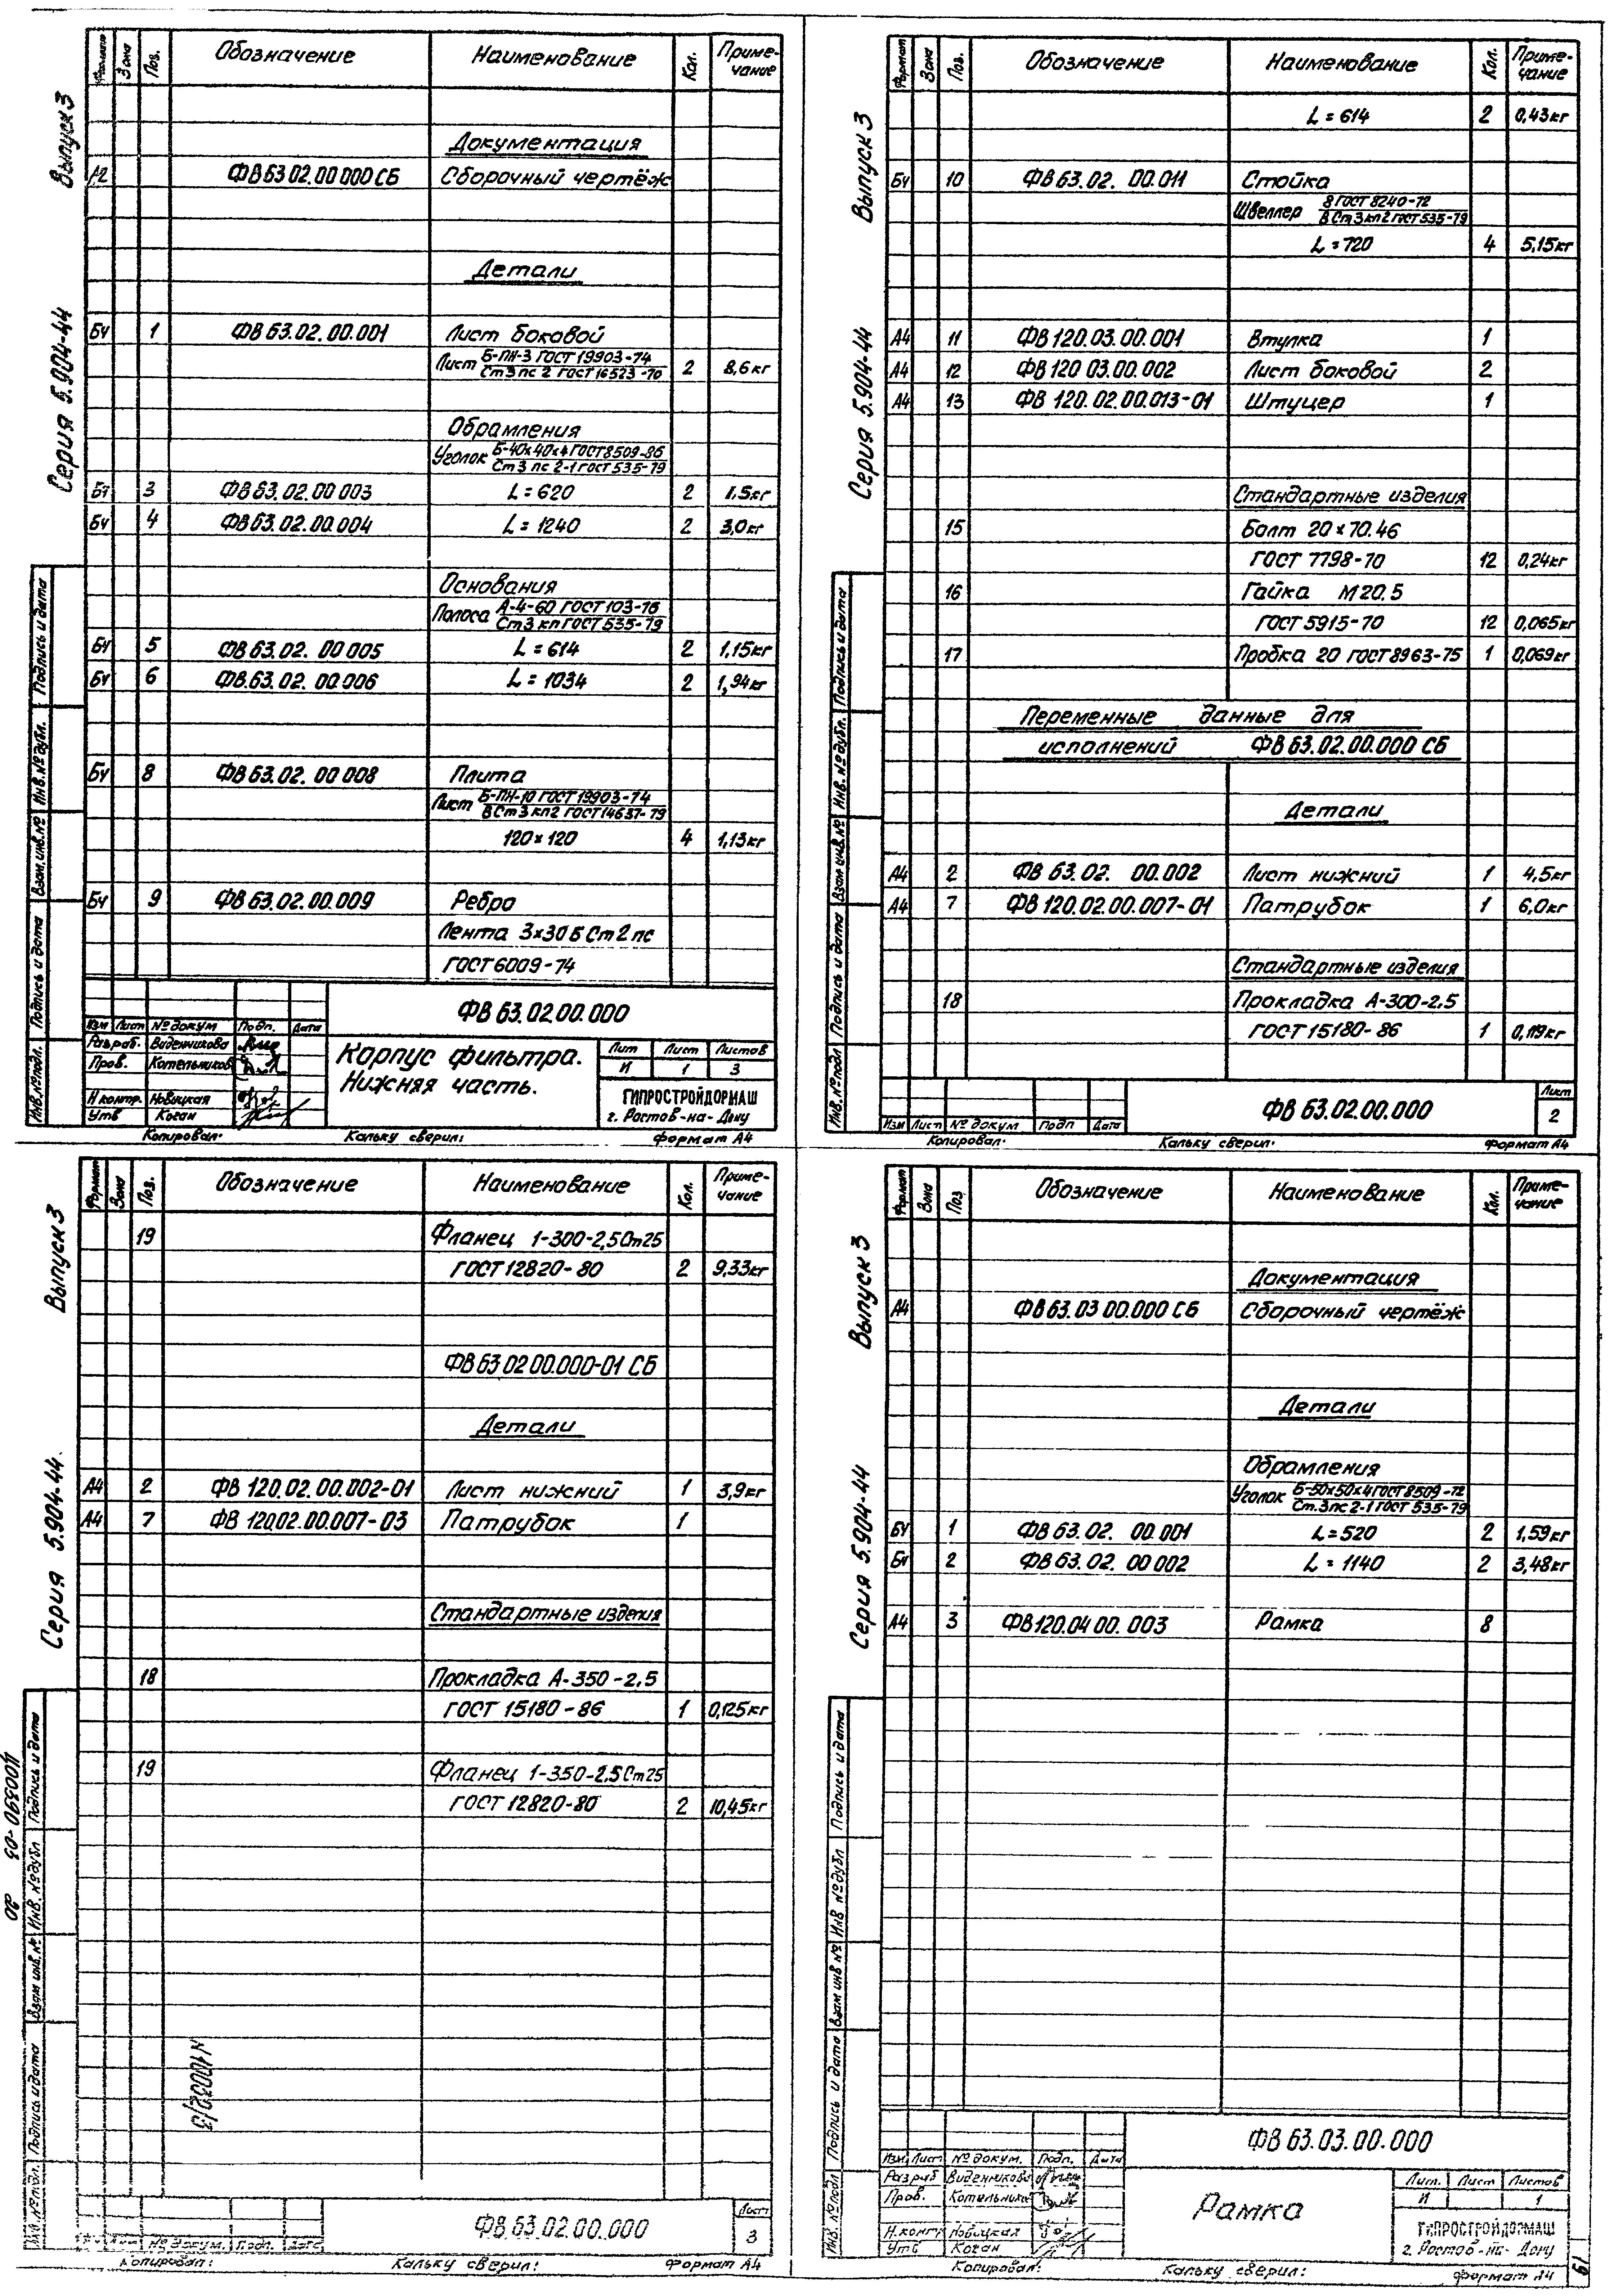 Выпуск 3
Серия 5.904-44
Формат Зона Поз. Обозначение Наименование Кол. Примечание
Документация
А2 ФВ 63.02.00 000 СБ Сборочный чертёж
Детали
БЧ 1 ФВ 63.02.00.001 Лист боковой
Лист Б-ПН-3 ГОСТ 19903-74 / Ст3 пс 2 ГОСТ 16523-70 2 8,6кг
Обрамления
Уголок Б-40х40х4 ГОСТ 8509-86 / Ст 3 пс 2-1 ГОСТ 535-79
БЧ 3 ФВ 63.02.00 003 L=620 2 1,5кг
БЧ 4 ФВ 63.02.00.004 L=1240 2 3,0кг
Основания
Полоса А-4-60 ГОСТ 103-76 / Ст3 кп ГОСТ 535-79
БЧ 5 ФВ 63.02. 00 005 L=614 2 1,15кг
БЧ 6 ФВ.63.02. 00.006 L=1034 2 1,94кг
БЧ 8 ФВ 63.02. 00 008 Плита
Лист Б-ПН-10 ГОСТ 19903-74 / ВСт3 кп2 ГОСТ 14637-79
120×120 4 1,13кг
БЧ 9 ФВ 63.02.00.009 Ребро
Лента 3х30 Б Ст2пс
ГОСТ 6009-74
ФВ 63.02.00.000
Изм Лист № докум Подп. Дата
Разраб. Виденникова
Пров. Котельников
Н контр. Новицкая
Утв Коган
Корпус фильтра.
Нижняя часть.
Лит Лист Листов
И 1 3
ГИПРОСТРОЙДОРМАШ
г. Ростов-на-Дону
Инв. № подл. Подпись и дата Взам. инв. № Инв. № дубл. Подпись и дата
Копировал: Кальку сверил: Формат А4
Выпуск 3
Серия 5.904-44
Формат Зона Поз. Обозначение Наименование Кол. Примечание
L=614 2 0,43кг
БЧ 10 ФВ 63.02. 00.011 Стойка
Швеллер 8 ГОСТ 8240-72 / ВСт3кп2 ГОСТ 535-79
L=720 4 5,15кг
А4 11 ФВ 120.03.00.001 Втулка 1
А4 12 ФВ 120 03.00.002 Лист боковой 2
А4 13 ФВ 120.02.00.013-01 Штуцер 1
Стандартные изделия
15 Болт 20×70.46
ГОСТ 7798-70 12 0,24кг
16 Гайка М20.5
ГОСТ 5915-70 12 0,065кг
17 Пробка 20 ГОСТ 8963-75 1 0,069кг
Переменные данные для
исполнений ФВ 63.02.00.000 СБ
Детали
А4 2 ФВ 63.02. 00.002 Лист нижний 1 4,5кг
А4 7 ФВ 120.02.00.007-01 Патрубок 1 6,0кг
Стандартные изделия
18 Прокладка А-300-2.5
ГОСТ 15180-86 1 0,119кг
ФВ 63.02.00.000
Лист
2
Изм Лист № докум Подп Дата
Инв. № подл Подпись и дата Взам инв. № Инв. № дубл. Подпись и дата
Копировал. Кальку сверил. Формат А4
Выпуск 3
Серия 5.904-44.
Формат Зона Поз. Обозначение Наименование Кол. Примечание
19 Фланец 1-300-2,5 Ст25
ГОСТ 12820-80 2 9,33кг
ФВ 63 02 00.000-01 СБ
Детали
А4 2 ФВ 120.02.00.002-01 Лист нижний 1 3,9кг
А4 7 ФВ 120.02.00.007-03 Патрубок 1
Стандартные изделия
18 Прокладка А-350-2,5
ГОСТ 15180-86 1 0,125кг
19 Фланец 1-350-2,5 Ст25
ГОСТ 12820-80 2 10,45кг
ФВ 63.02.00.000
Лист
3
№ докум. Подп. Дата
Инв. № подл. Подпись и дата Взам инв. № Инв. № дубл Подпись и дата
Копировал: Кальку сверил: Формат А4
Выпуск 3
Серия 5.904-44
Формат Зона Поз Обозначение Наименование Кол. Примечание
Документация
А4 ФВ 63.03 00.000 СБ Сборочный чертёж
Детали
Обрамления
Уголок Б-50х50х4 ГОСТ 8509-72 / Ст.3пс 2-1 ГОСТ 535-79
БЧ 1 ФВ 63.02. 00.001 L=520 2 1,59кг
БЧ 2 ФВ 63.02. 00 002 L=1140 2 3,48кг
А4 3 ФВ120.04 00. 003 Рамка 8
ФВ 63.03.00.000
Изм Лист № докум. Подп. Дата
Разраб Виденникова
Пров. Котельников
Н.контр Новицкая
Утв Коган
Рамка
Лит. Лист Листов
И 1
ГИПРОСТРОЙДОРМАШ
г. Ростов-на-Дону
Инв. № подл Подпись и дата Взам инв № Инв № дубл Подпись и дата
Копировал: Кальку сверил: Формат А4
19